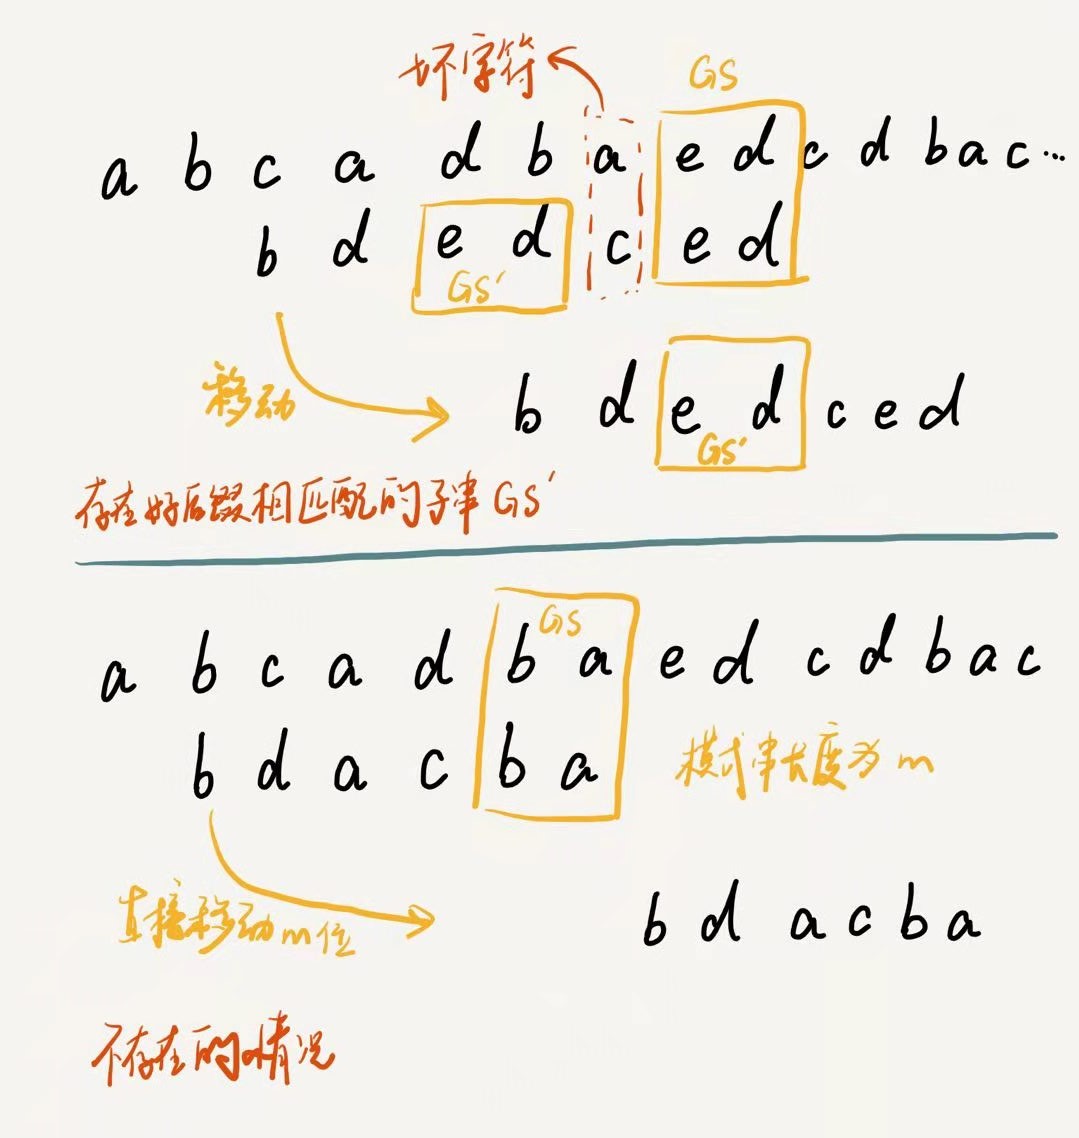 坏字符
GS
a b c a d b a e d c d b a c ...
b d e d c e d
GS'
移动
b d e d c e d
GS'
存在好后缀相匹配的子串 GS'
GS
a b c a d b a e d c d b a c
b d a c b a
模式串长度为 m
直接移动m位
b d a c b a
不存在的情况